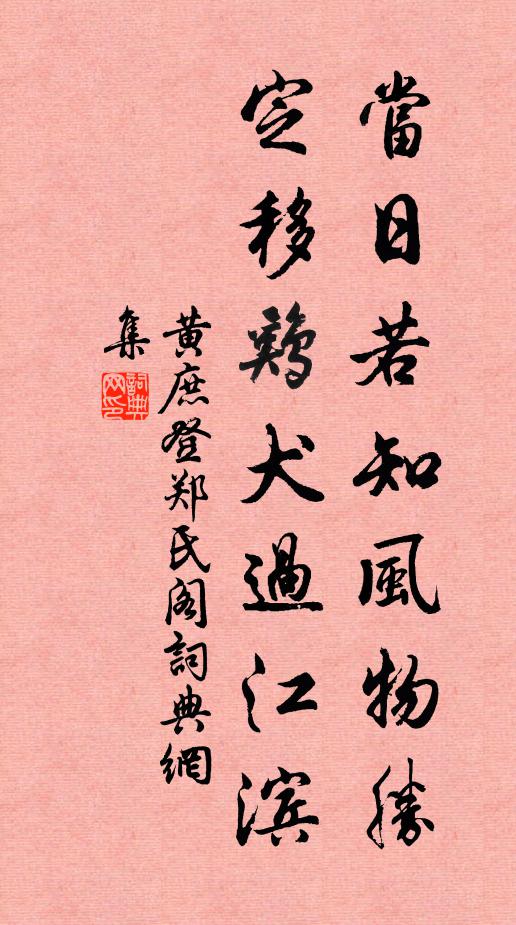 當日若知風物勝
定移鷄犬過江滨
黄庶登郑氏阁詞典網
集
詞典网印